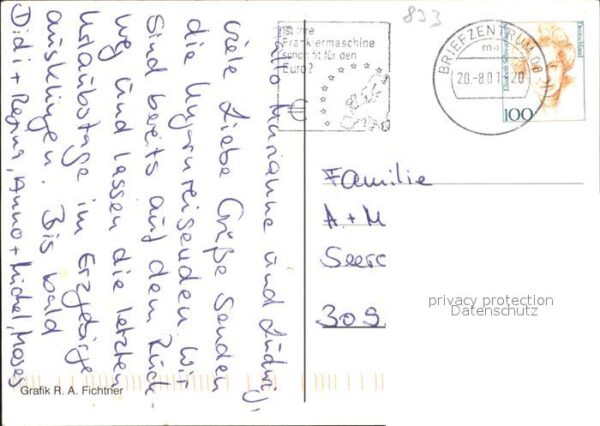 Hallo Marianne und
viele Liebe Grüße senden
die Ungarnreisenden. Wir
sind bereits auf dem Rück-
weg und lassen die letzten
Urlaubstage im Erzgebirge
ausklingen. Bis bald
Didi + Regina, Anno + Michel, Moses
Grafik R. A. Fichtner
833
Ist Ihre
Frankiermaschine
schon fit für den
Euro?
€
BRIEFZENTRUM 08
20.-8.01.-20
Deutschland
100
Familie
A + M
Seere
309
privacy protection
Datenschutz